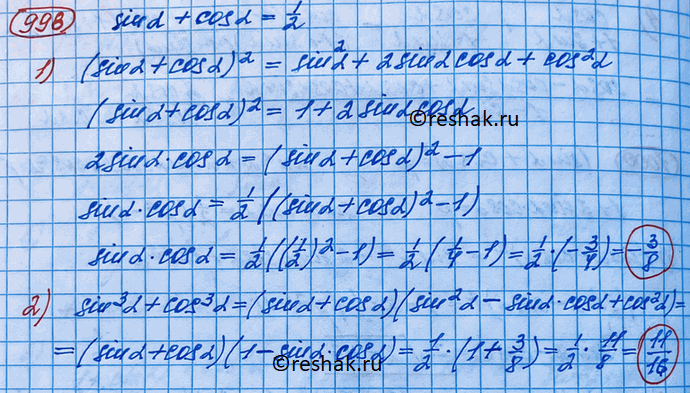 998 sinα + cosα = 1/2
1) (sinα + cosα)² = sin²α + 2sinα cosα + cos²α
(sinα + cosα)² = 1 + 2 sinα cosα
©reshak.ru
2sinα · cosα = (sinα + cosα)² − 1
sinα · cosα = 1/2 ((sinα + cosα)² − 1)
sinα · cosα = 1/2 ((1/2)² − 1) = 1/2 (1/4 − 1) = 1/2 · (−3/4) = −3/8
2) sin³α + cos³α = (sinα + cosα)(sin²α − sinα · cosα + cos²α) =
= (sinα + cosα)(1 − sinα · cosα) = 1/2 · (1 + 3/8) = 1/2 · 11/8 = 11/16
©reshak.ru